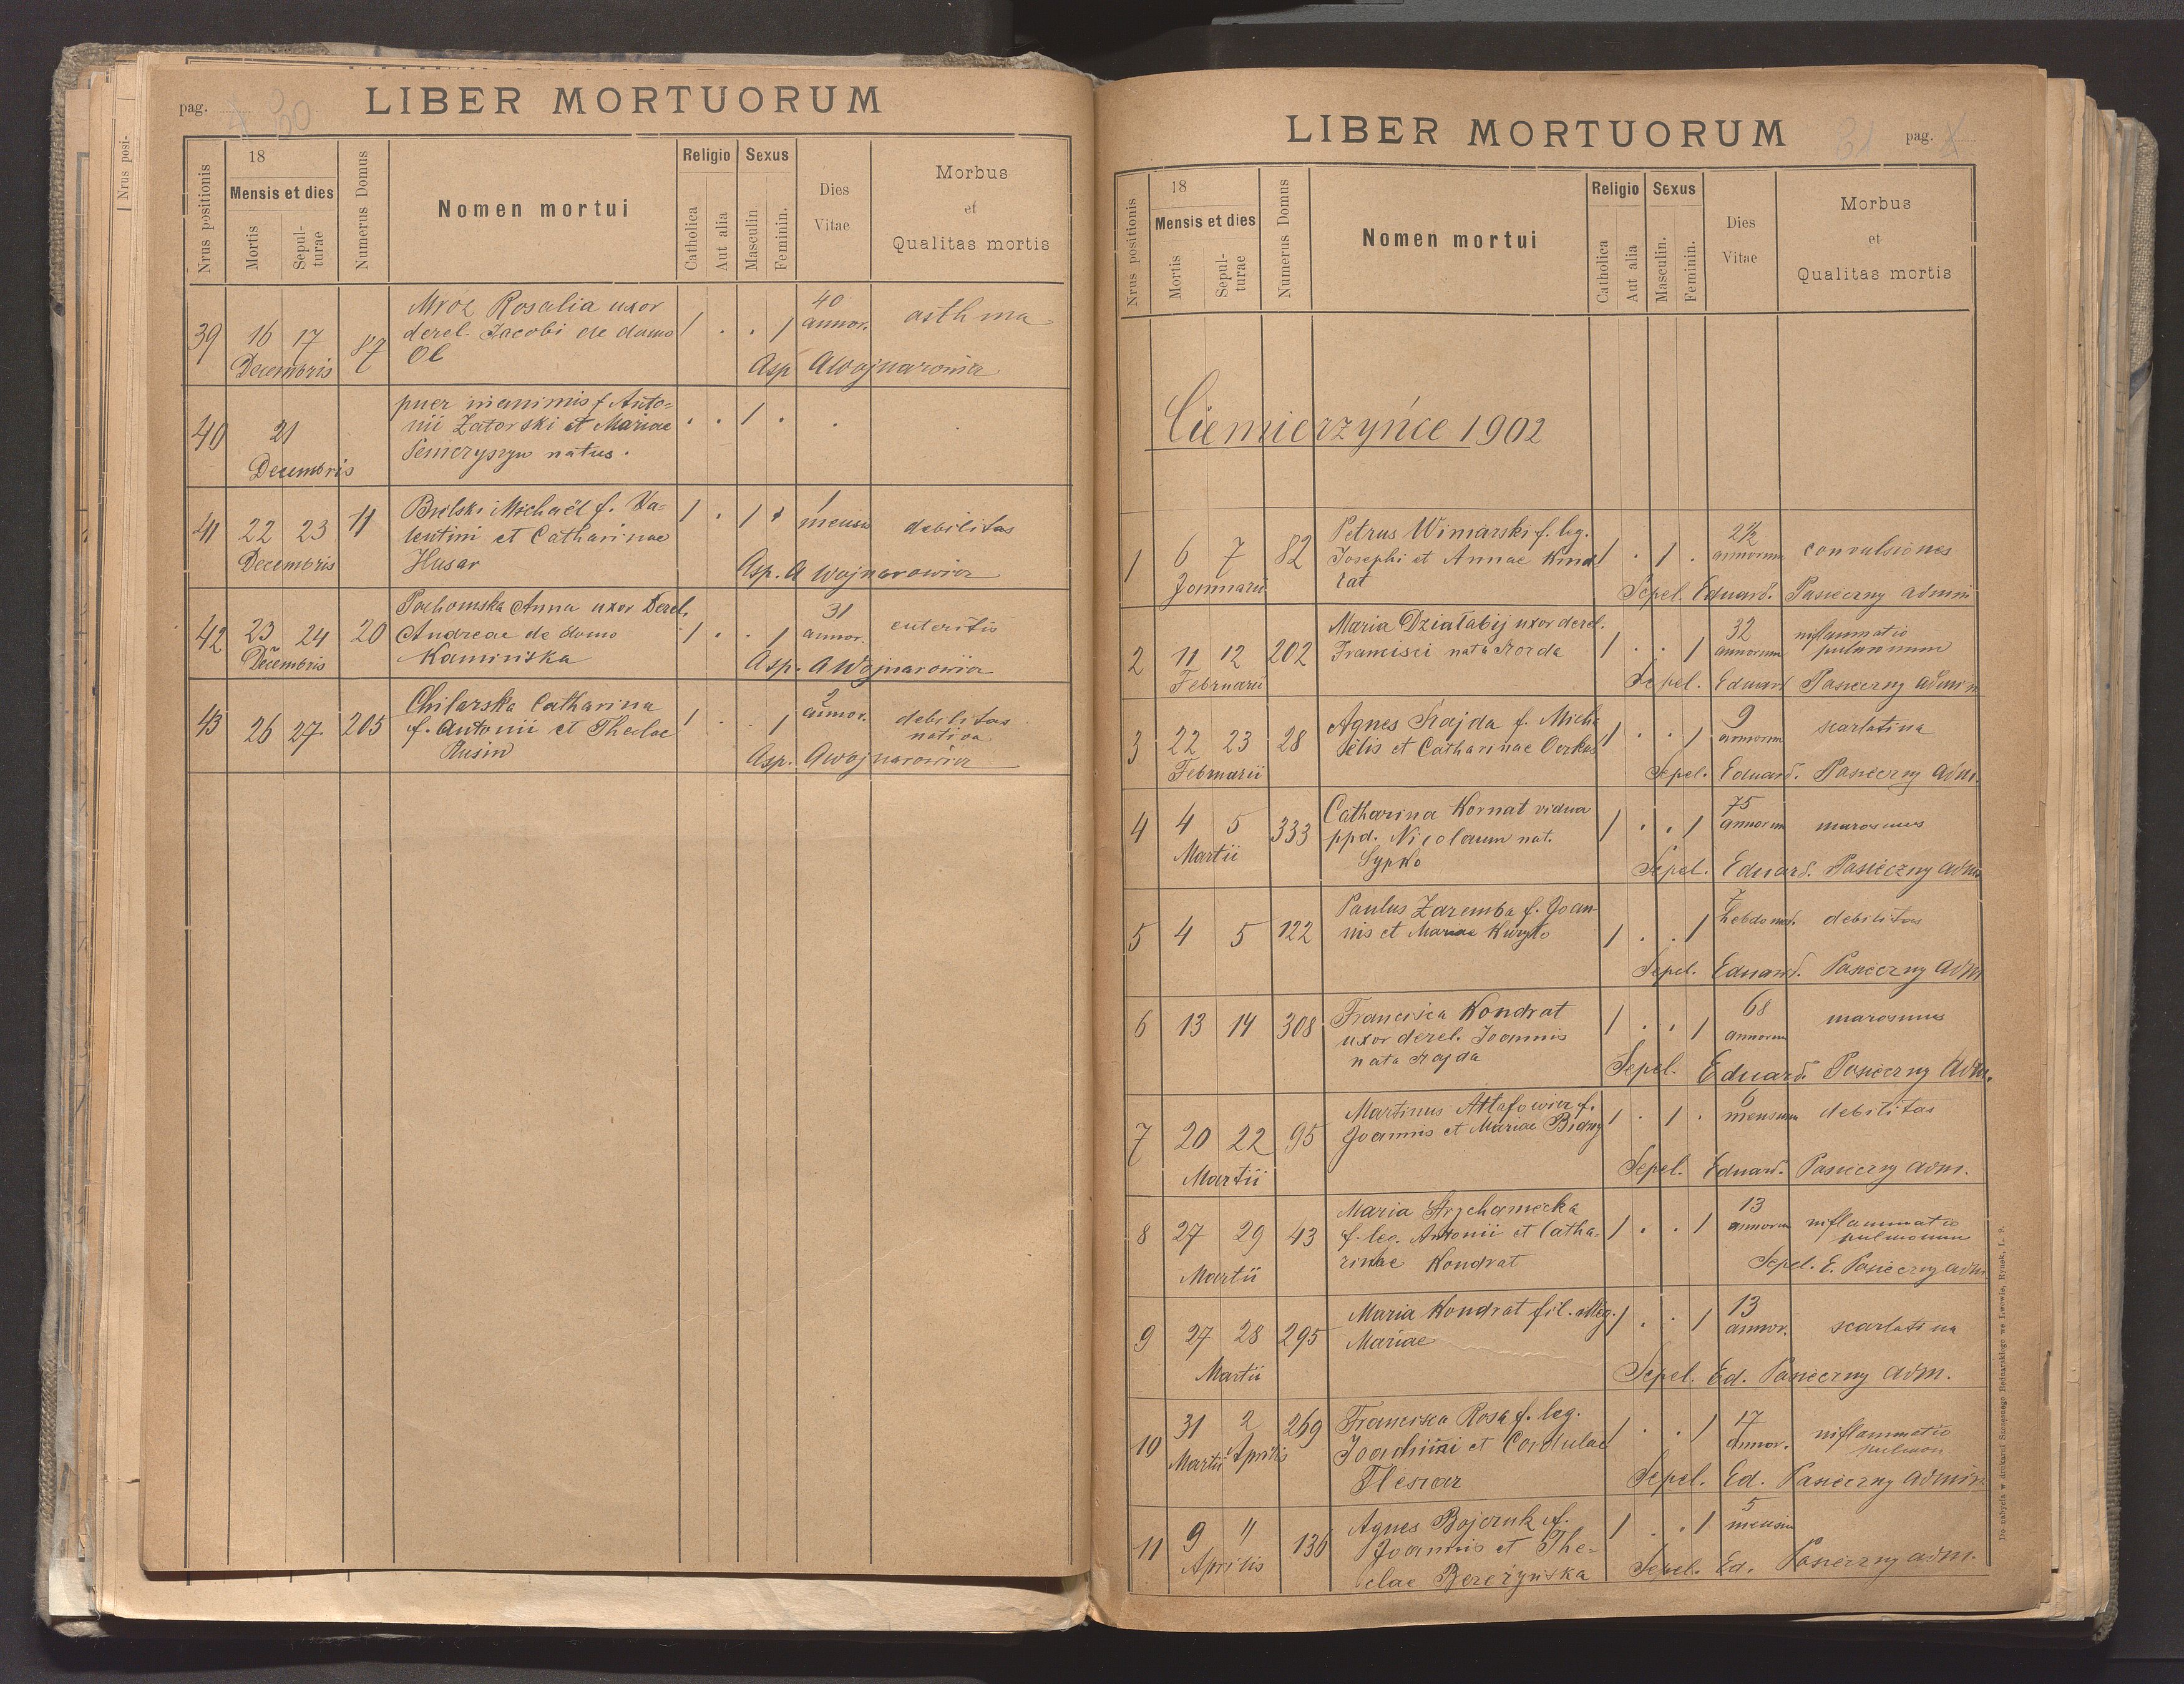 pag. 30
LIBER MORTUORUM
Nrus positionis
18
Mensis et dies
Mortis
Sepul-
turae
Numerus Domus
Nomen mortui
Religio
Catholica
Aut alia
Sexus
Masculin
Feminin.
Dies
Vitae
Morbus
et
Qualitas mortis
39 16 17 Decembris 87
Mroz Rosalia uxor
derel. Jacobi de domo
Ol
1 . . 1 40 annor. asthma
Asp AWojnarowicz
40 21 Decembris
puer inanimis f Anto=
nii Zatorski et Mariae
Semeryszyn natus.
. . 1 . . .
41 22 23 Decembris 11
Brilski Michaël f. Va=
lentini et Catharinae
Husar
1 . 1 . 1 mensis debilitas
Asp. A Wojnarowicz
42 23 24 Decembris 20
Pochomska Anna uxor derel.
Andreae de domo
Kaminska
1 . . 1 31 annor. enteritis
Asp. AWojnarowicz
43 26 27 205
Chilarska Catharina
f. Antonii et Theclae
Rusin
1 . . 1 2 annor. debilitas
nativa
Asp. AWojnarowicz
LIBER MORTUORUM
31 pag.
Nrus positionis
18
Mensis et dies
Mortis
Sepul-
turae
Numerus Domus
Nomen mortui
Religio
Catholica
Aut alia
Sexus
Masculin.
Feminin.
Dies
Vitae
Morbus
et
Qualitas mortis
Ciemierzyńce 1902
1 6 7 Januarii 82
Petrus Winiarski f. leg.
Josephi et Annae Kind
rat
1 . 1 . 2 1/2 annorum convulsiones
Sepel. Eduard. Pasieczny admin
2 11 12 Februarii 202
Maria Działabij uxor derel.
Francisci nata Korda
1 . . 1 32 annorum inflammatio
pulmonum
Sepel. Eduard Pasieczny admin
3 22 23 Februarii 28
Agnes Hajda f. Micha
ëlis et Catharinae Ocrkus
1 . . 1 9 annorum scarlatina
Sepel. Eduard. Pasieczny adm.
4 4 5 Martii 333
Catharina Kornat vidua
ppd. Nicolaum nat.
Sypko
1 . . 1 75 annorum marasmus
Sepel. Eduard. Pasieczny adm
5 4 5 122
Paulus Zaremba f. Joan
nis et Mariae Kuryło
1 . . 1 7 hebdomad. debilitas
Sepel. Eduard. Pasieczny adm
6 13 14 308
Francisca Kondrat
uxor derel. Joannis
nata Hajda
1 . . 1 68 annorum marasmus
Sepel. Eduard. Pasieczny adm.
7 20 22 Martii 95
Martinus Attafowicz f.
Joannis et Mariae Bidny
1 . 1 . 6 mensium debilitas
Sepel. Eduard. Pasieczny adm.
8 27 29 Martii 43
Maria Strychaniecka
f. leg. Antonii et Catha
rinae Kondrat
1 . . 1 13 annorum inflammatio
pulmonum
Sepel. E. Pasieczny adm
9 27 28 Martii 295
Maria Kondrat fil. illeg.
Mariae
1 . . 1 13 annor. scarlatina
Sepel. Ed. Pasieczny adm.
10 31 Martii 2 Aprilis 269
Francisca Rosa f. leg.
Joachimi et Cordulae
Slesiar
1 . . 1 17 annor. inflammatio
pulmon
Sepel. Ed. Pasieczny admin
11 9 11 Aprilis 136
Agnes Bojczuk f.
Joannis et The=
clae Bereżyńska
1 . . 1 5 mensium
Sepel. Ed. Pasieczny adm.
Do nabycia w drukarni Szczęsnego Bednarskiego we Lwowie, Rynek, L. 9.